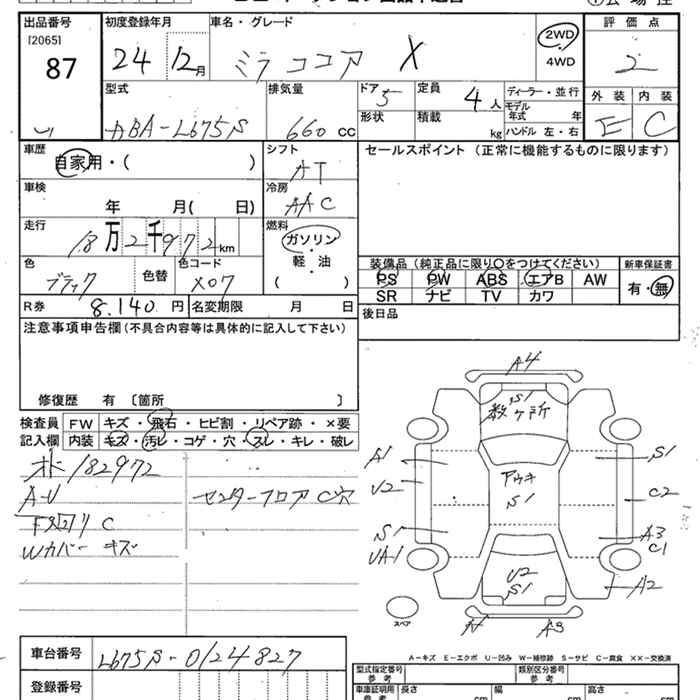 出品番号 初度登録年月 車名・グレード 評価点
[2065]
87 24 12月 ミラココア X 2WD 2
4WD
型式 排気量 ドア 5 定員 4人 ディーラー・並行 外装 内装
DBA-L675S 660 CC 形状 積載 kg モデル年式 年 E C
ハンドル 左・右
車歴 シフト セールスポイント (正常に機能するものに限ります)
自家用・( ) AT
車検 冷房
年 月( 日) AAC
走行 燃料
18万2千972km ガソリン
色 色替 色コード 軽・油 装備品(純正品に限り○をつけてください) 新車保証書
ブラック X07 ( ) PS PW ABS エアB AW 有・無
SR ナビ TV カワ
R券 8,140円 名変期限 月 日 後日品
注意事項申告欄(不具合内容等は具体的に記入して下さい)
修復歴 有 〔箇所 〕
検査員 FW キズ・飛石・ヒビ割・リペア跡・×要
記入欄 内装 キズ・汚レ・コゲ・穴・スレ・キレ・破レ
182972
センターフロアC穴
Wカバー キズ
A4
S1
数ヶ所
A1 S1
U2 S1 C2
S1 A3
UA1 C1
U2 A2
S1
スペア A3
A-キズ E-エクボ U-凹み W-補修跡 S-サビ C-腐食 XX-交換済
車台番号 L675S-0124827
型式指定番号 類別区分番号
参考 参考
登録番号 車庫証明用 長さ 幅 高さ
参考 cm cm cm